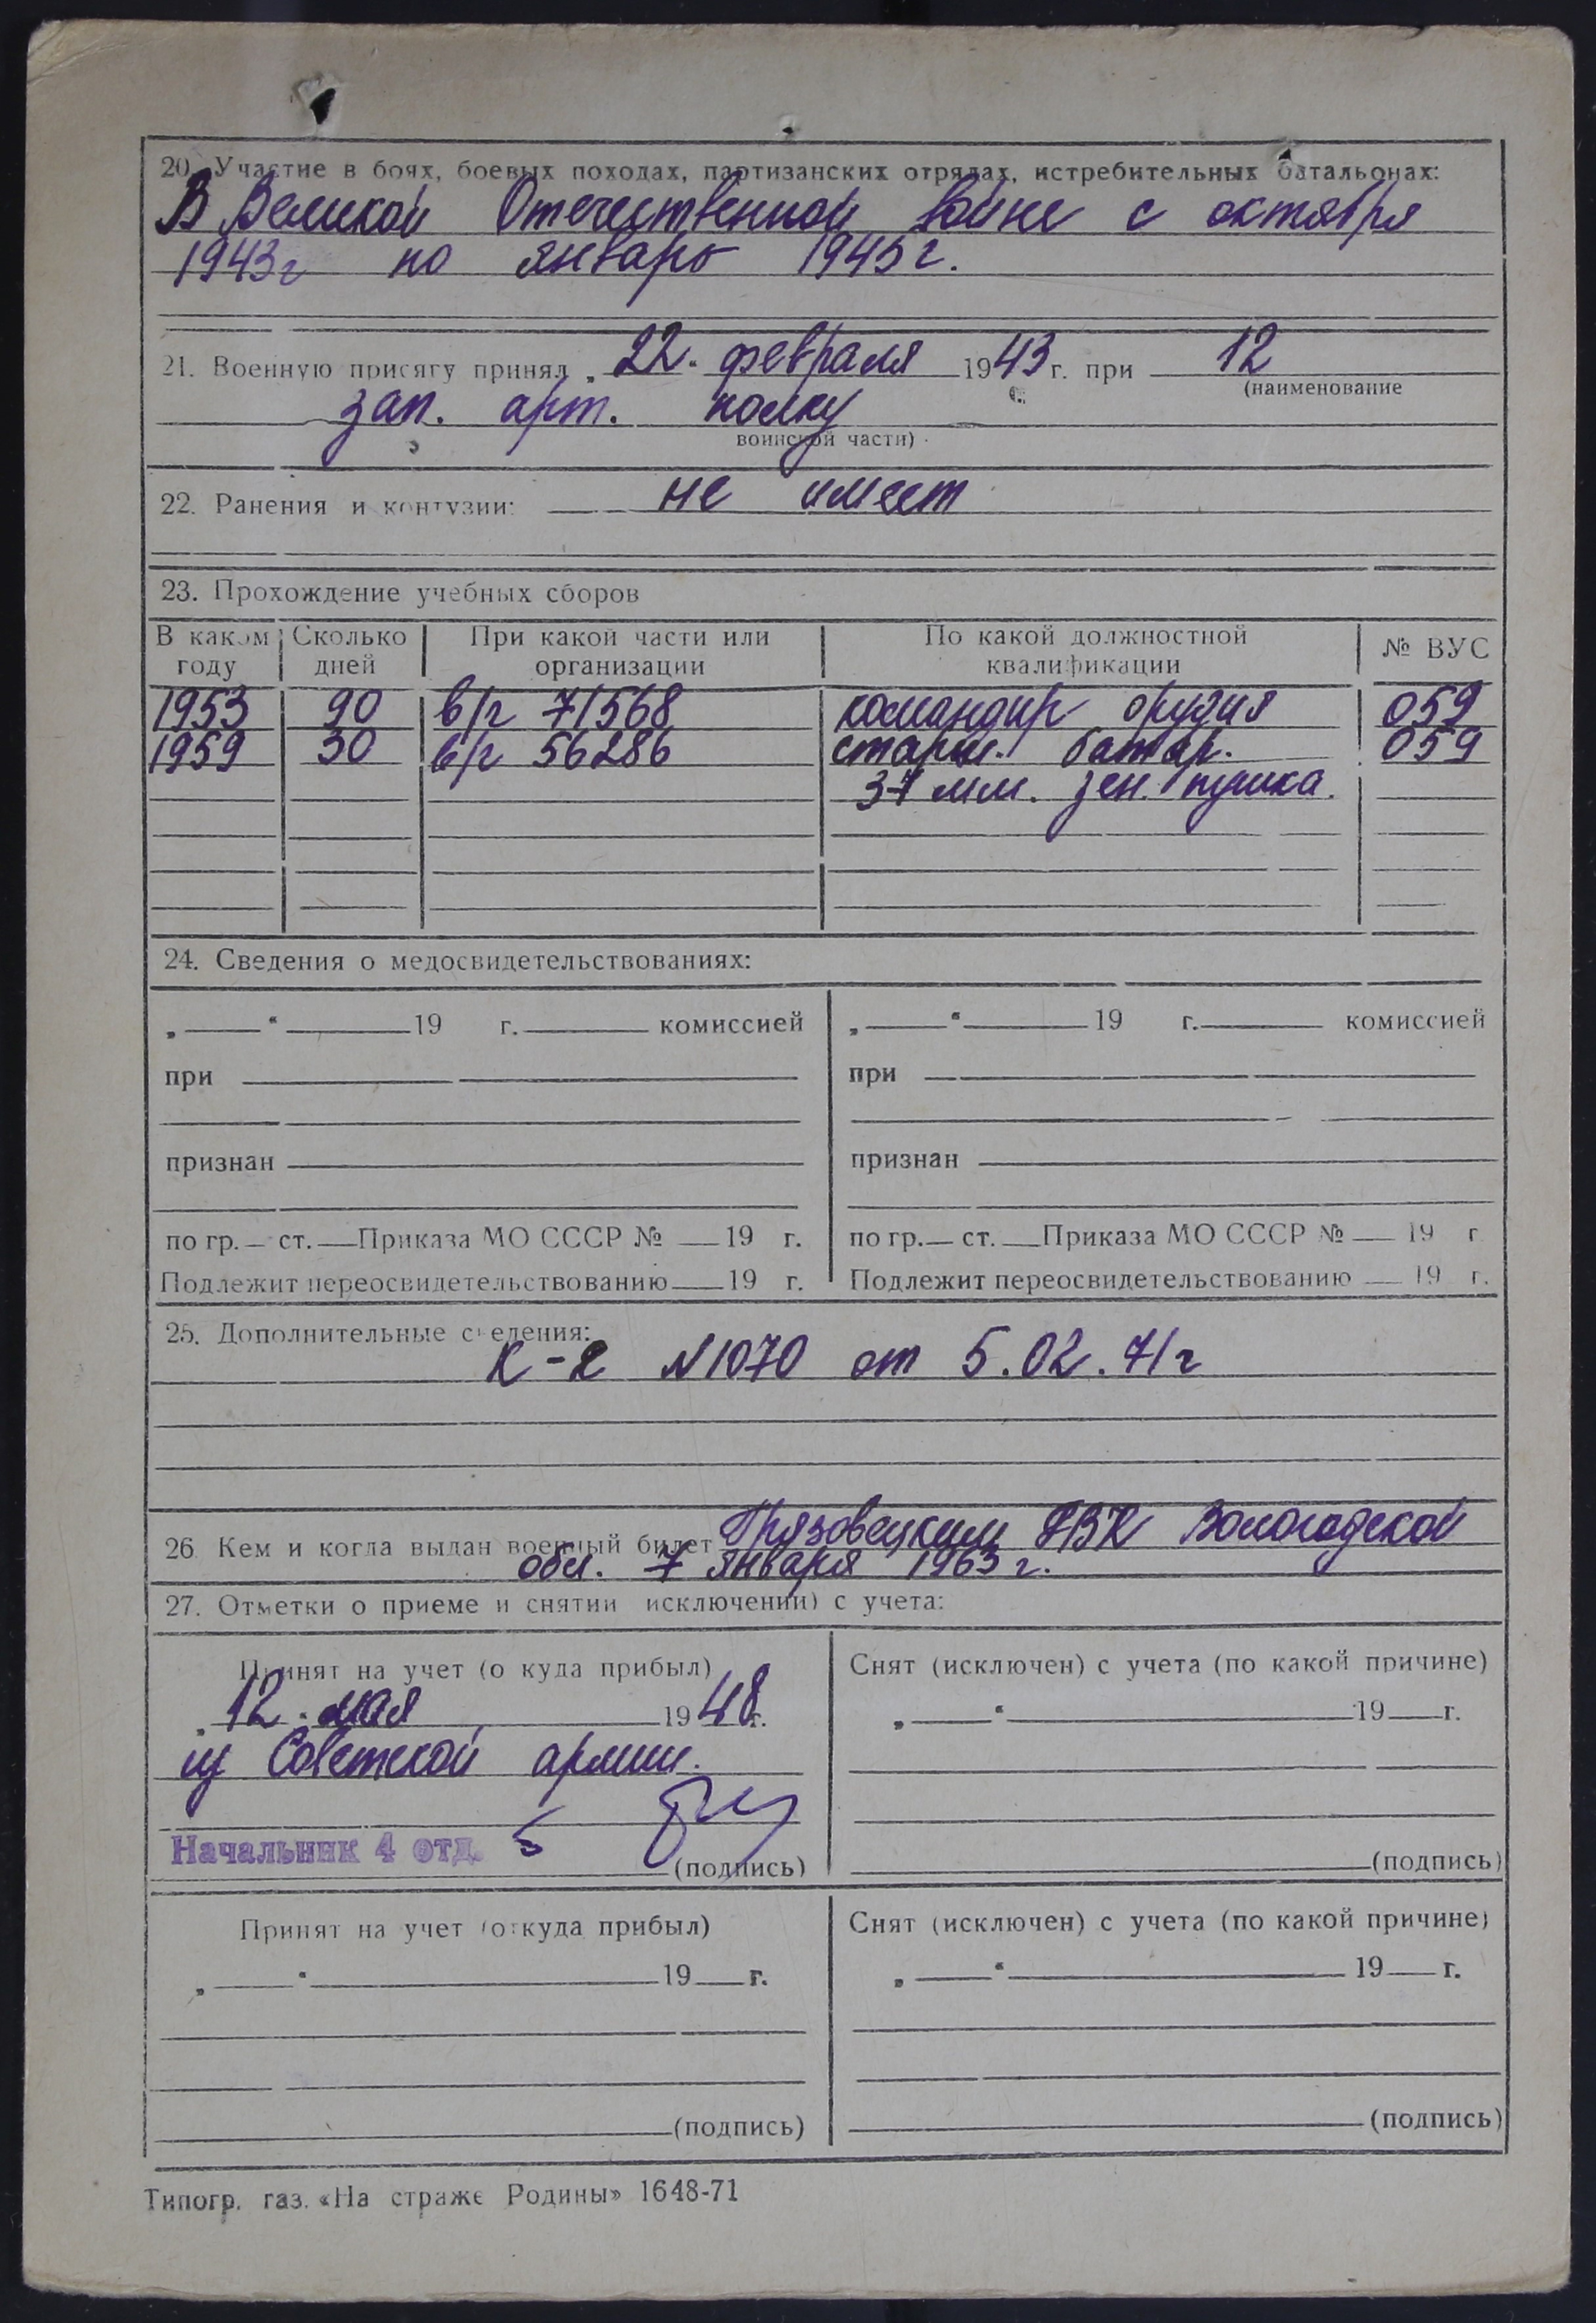 20. Участие в боях, боевых походах, партизанских отрядах, истребительных батальонах:
В Великой Отечественной войне с октября
1943г по январь 1945г.
21. Военную присягу принял „22“ февраля 1943 г. при 12
(наименование
зап. арт. полку
воинской части)
22. Ранения и контузии: не имеет
23. Прохождение учебных сборов
В каком году Сколько дней При какой части или организации По какой должностной квалификации № ВУС
1953 90 в/ч 71568 командир орудия 059
1959 30 в/ч 56286 старш. батар. 059
37 мм. зен. пушка.
24. Сведения о медосвидетельствованиях:
„ “ 19 г. комиссией „ “ 19 г. комиссией
при при
признан признан
по гр. ст. Приказа МО СССР № 19 г. по гр. ст. Приказа МО СССР № 19 г
Подлежит переосвидетельствованию 19 г. Подлежит переосвидетельствованию 19 г.
25. Дополнительные сведения:
N1070 от 5.02.71г
26. Кем и когда выдан военный билет Грязовецким РВК Вологодской
обл. 7 января 1963 г.
27. Отметки о приеме и снятии исключении) с учета:
Принят на учет (о куда прибыл) Снят (исключен) с учета (по какой причине)
„12“ мая 1948 г. „ “ 19 г.
из Советской армии.
Начальник 4 отд.
(подпись) (подпись)
Принят на учет (откуда прибыл) Снят (исключен) с учета (по какой причине)
„ “ 19 г. „ “ 19 г.
(подпись) (подпись)
Типогр. газ. «На страже Родины» 1648-71